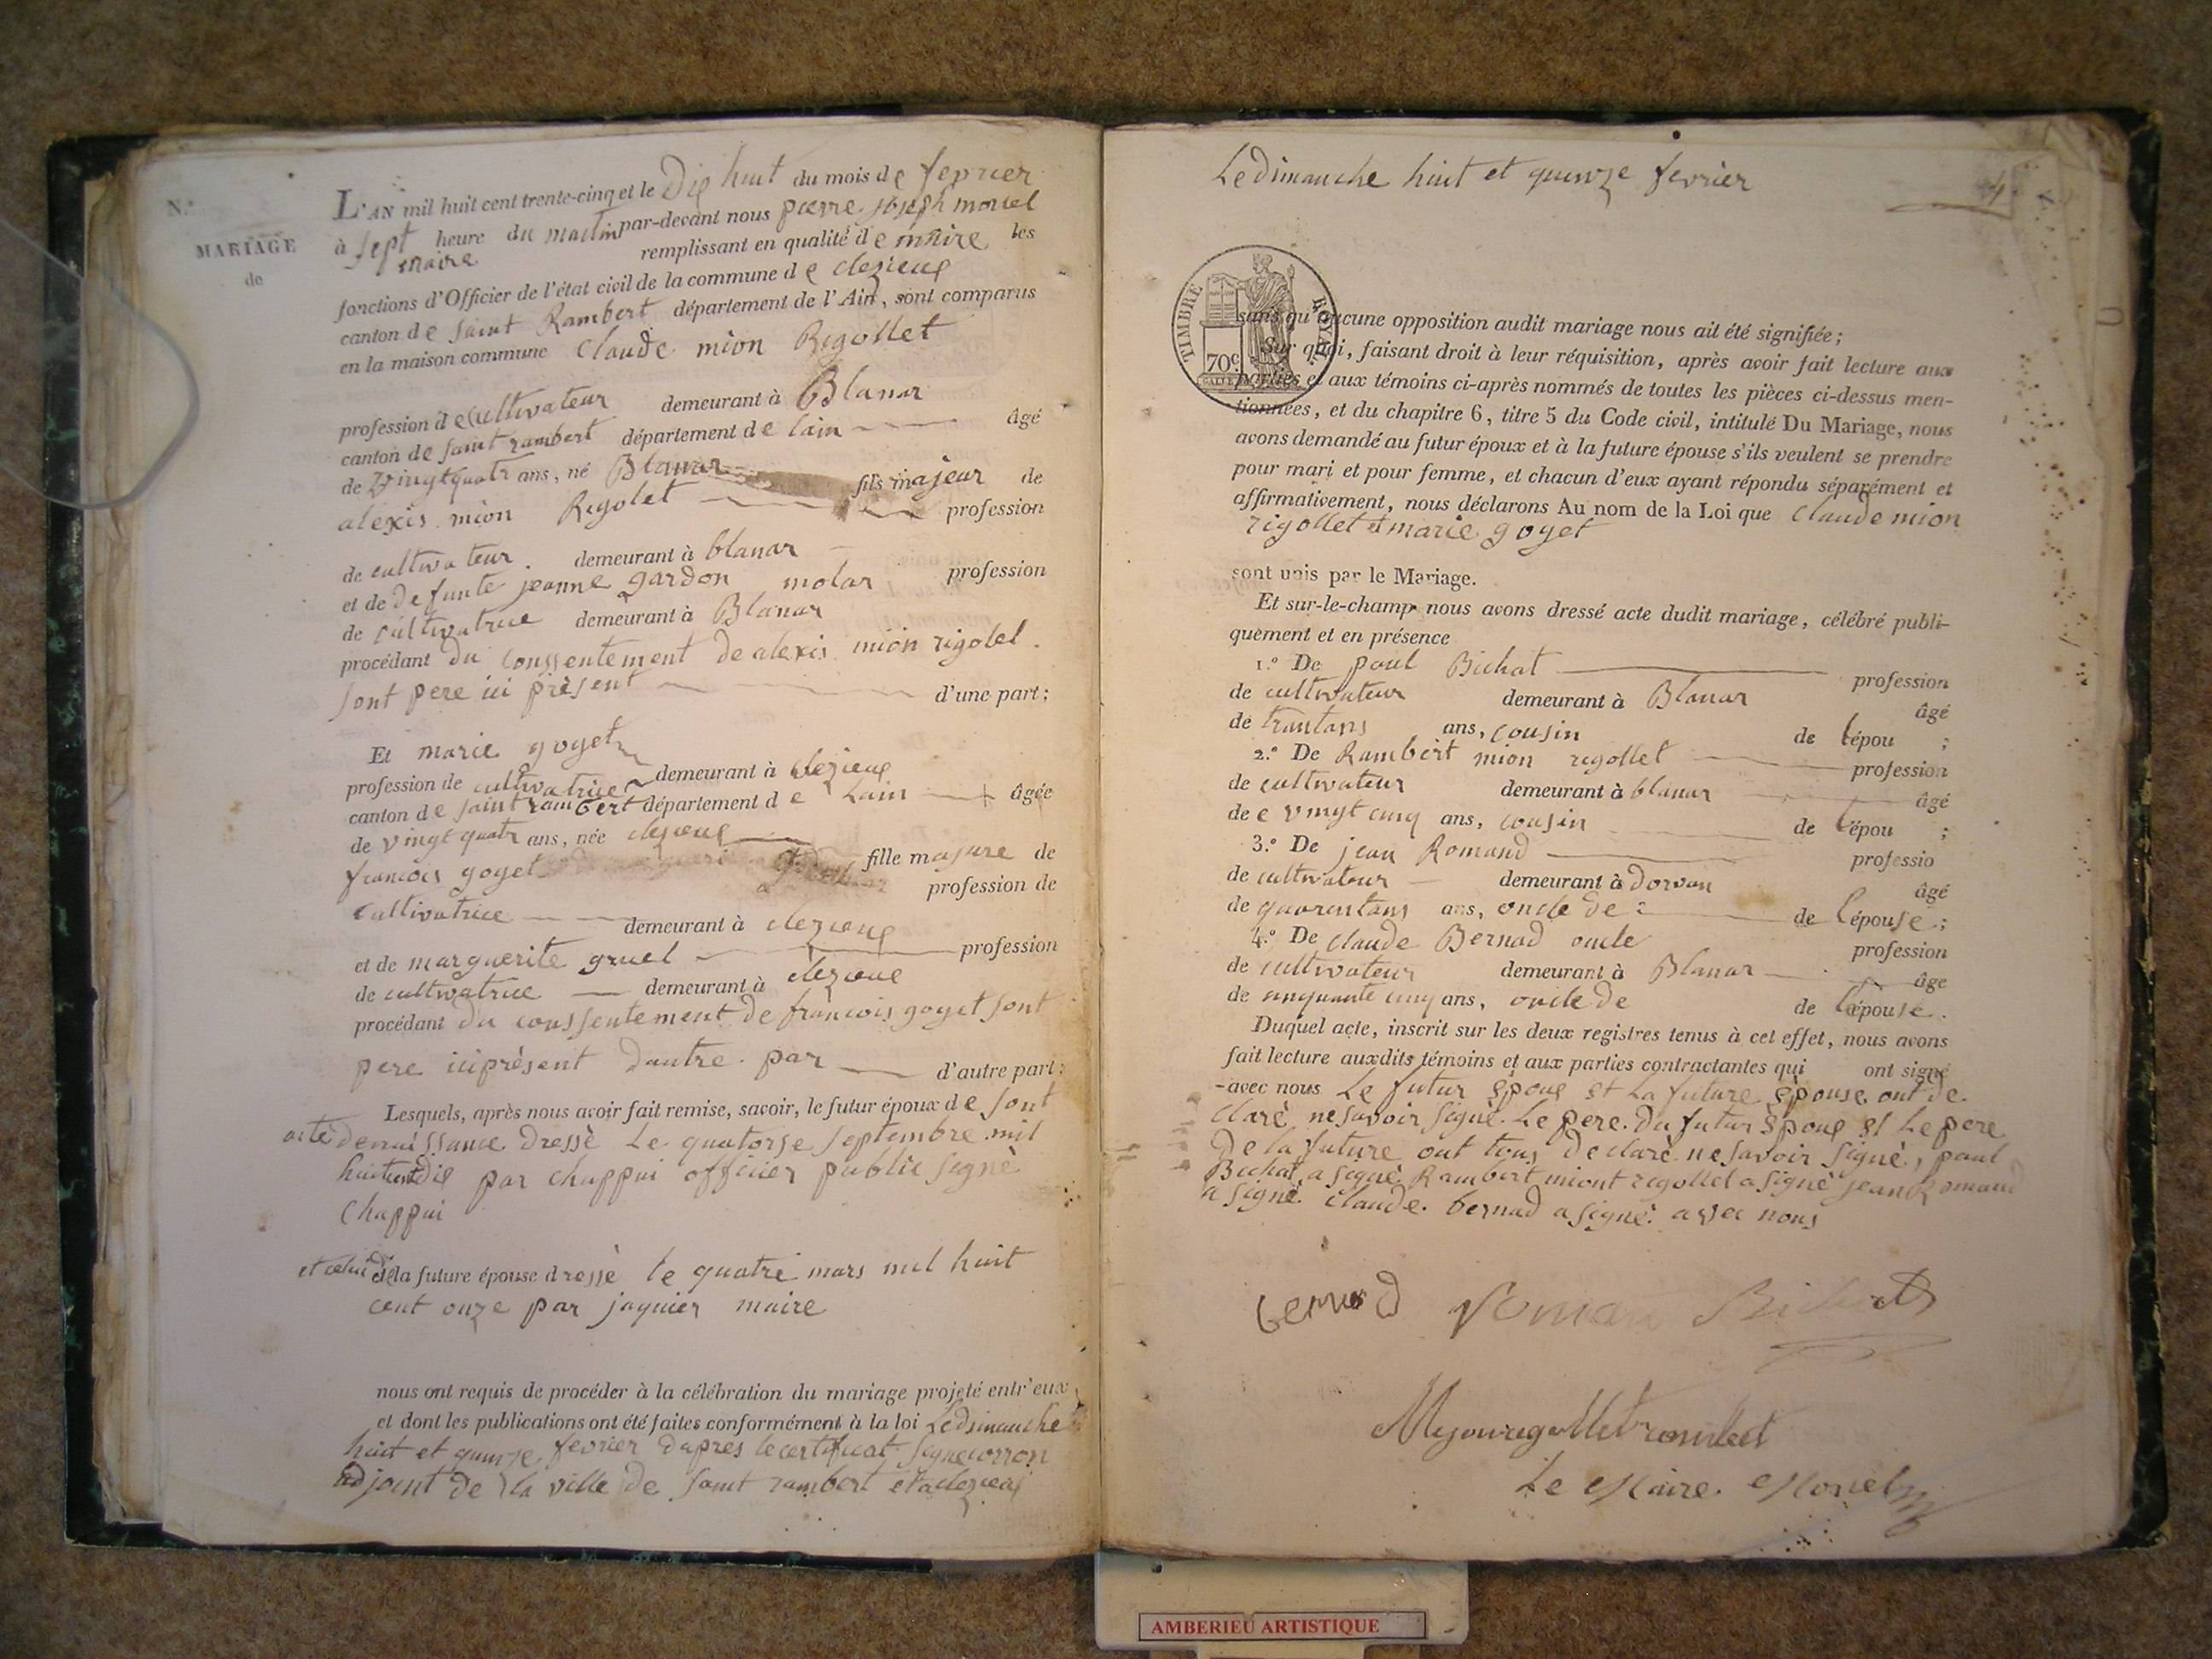 N.o
MARIAGE
de
L'AN mil huit cent trente-cinq et le Dix huit du mois de fevrier
à sept heure du mattin par-devant nous pierre joseph moriel
maire remplissant en qualité de maire les
fonctions d'Officier de l'état civil de la commune de clezieux
canton de saint Rambert département de l'Ain, sont comparus
en la maison commune Claude mion Rigollet
profession de cultivateur demeurant à Blanar
canton de saint rambert département de lain âgé
de vingt quatr ans, né Blanar fils majeur de
alexis mion Rigolet profession
de cultivateur . demeurant à blanar
et de defunte jeanne gardon molar profession
de cultivatrice demeurant à Blanar
procédant du conssentement de alexis mion rigolel .
sont pere ici présent d'une part ;
Et marie goyet
profession de cultivatrice demeurant à clezieux
canton de saint rambert département de Lain âgée
de vingt quatr ans, née clezieux
françois goyet fille majure de
profession de
cultivatrice demeurant à clezieux
et de marguerite gruel profession
de cultivatrice demeurant à clezieux
procédant du conssentement de françois goyet sont
pere ici présent dautre par d'autre part ;
Lesquels, après nous avoir fait remise, savoir, le futur époux de sont
acte denaissance dressé Le quatorse septembre mil
huitcentdix par chappui officier public signé
Chappui
et celui de la future épouse dressé le quatre mars mil huit
cent onze par jaquier maire
nous ont requis de procéder à la célébration du mariage projeté entr'eux,
et dont les publications ont été faites conformément à la loi Ledimanche
huit et quinze fevrier dapres le certificat signé corron
adjoint de la ville de saint rambert et a clezieux
Le dimanche huit et quinze fevrier
4
TIMBRE ROYAL
70c
sans qu'aucune opposition audit mariage nous ait été signifiée ;
Sur quoi, faisant droit à leur réquisition, après avoir fait lecture aux
parties et aux témoins ci-après nommés de toutes les pièces ci-dessus men-
tionnées, et du chapitre 6, titre 5 du Code civil, intitulé Du Mariage, nous
avons demandé au futur époux et à la future épouse s'ils veulent se prendre
pour mari et pour femme, et chacun d'eux ayant répondu séparément et
affirmativement, nous déclarons Au nom de la Loi que Claude mion
rigollet et marie goyet
sont unis par le Mariage.
Et sur-le-champ nous avons dressé acte dudit mariage, célébré publi-
quement et en présence
1.o De paul Bichat profession
de cultivateur demeurant à Blanar âgé
de trantans ans, cousin de lépou ;
2.o De Rambert mion rigollet profession
de cultivateur demeurant à blanar âgé
de e vingt cinq ans, cousin de lépou ;
3.o De jean Romand professio
de cultivateur demeurant à dorvan âgé
de quarentans ans, oncle de de lépouse ;
4.o De claude Bernad oncle profession
de cultivateur demeurant à Blanar âge
de cinquante cinq ans, oncle de de lépouse .
Duquel acte, inscrit sur les deux registres tenus à cet effet, nous avons
fait lecture auxdits témoins et aux parties contractantes qui ont signé
avec nous Le futur époux et La future épouse ont de
claré nesavoir signé. Le pere. du futur époux et Le pere
de la future ont tous declaré nesavoir signé, paul
Bichat, a signé. Rambert miont rigollet a signé jean Romand
a signé. Claude. bernad a signé. avec nous
bernad Romand Bichat
Le Maire. Moriel
AMBERIEU ARTISTIQUE